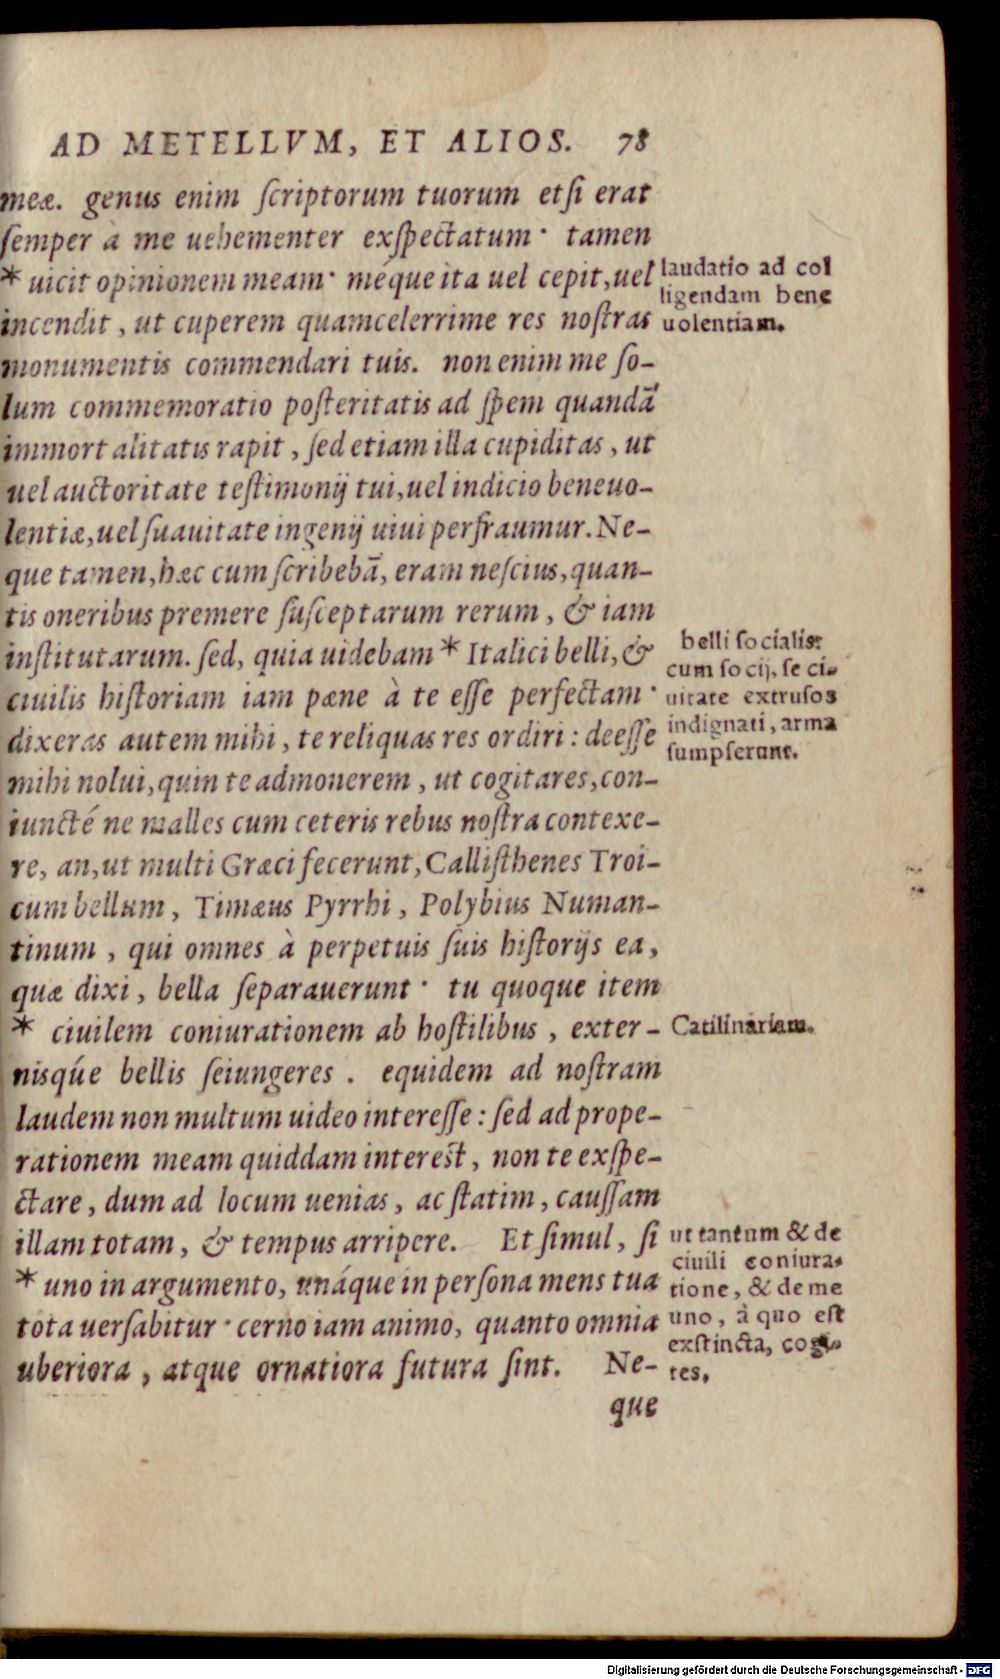 AD METELLVM, ET ALIOS. 78
meæ. genus enim ſcriptorum tuorum etſi erat
ſemper à me uehementer exſpectatum· tamen
* uicit opinionem meam· méque ita uel cepit, uel
incendit, ut cuperem quamcelerrime res noſtras
monumentis commendari tuis. non enim me ſo-
lum commemoratio poſteritatis ad ſpem quandā
immortalitatis rapit, ſed etiam illa cupiditas, ut
uel auctoritate teſtimonij tui, uel indicio beneuo-
lentiæ, uel ſuauitate ingenij uiui perfraumur. Ne-
que tamen, hæc cum ſcribebā, eram neſcius, quan-
tis oneribus premere ſuſceptarum rerum, & iam
inſtitutarum. ſed, quia uidebam * Italici belli, &
ciuilis hiſtoriam iam pæne à te eſſe perfectam·
dixeras autem mihi, te reliquas res ordiri: deeſſe
mihi nolui, quin te admonerem, ut cogitares, con-
iuncté ne malles cum ceteris rebus noſtra contexe-
re, an, ut multi Græci fecerunt, Calliſthenes Troi-
cum bellum, Timæus Pyrrhi, Polybius Numan-
tinum, qui omnes à perpetuis ſuis hiſtorijs ea,
quæ dixi, bella ſeparauerunt· tu quoque item
* ciuilem coniurationem ab hoſtilibus, exter-
nisq́ue bellis ſeiungeres. equidem ad noſtram
laudem non multum uideo intereſſe: ſed ad prope-
rationem meam quiddam intereſt, non te exſpe-
ctare, dum ad locum uenias, ac ſtatim, cauſſam
illam totam, & tempus arripere. Et ſimul, ſi
* uno in argumento, unáque in perſona mens tua
tota uerſabitur· cerno iam animo, quanto omnia
uberiora, atque ornatiora futura ſint. Ne-
que
laudatio ad col
ligendam bene
uolentiam.
belli ſocialis:
cum ſocij, ſe ci-
uitate extruſos
indignati, arma
ſumpſerunt.
Catilinariam.
ut tantum & de
ciuili coniura-
tione, & de me
uno, à quo eſt
exſtincta, cogi-
tes.
Digitalisierung gefördert durch die Deutsche Forschungsgemeinschaft - DFG